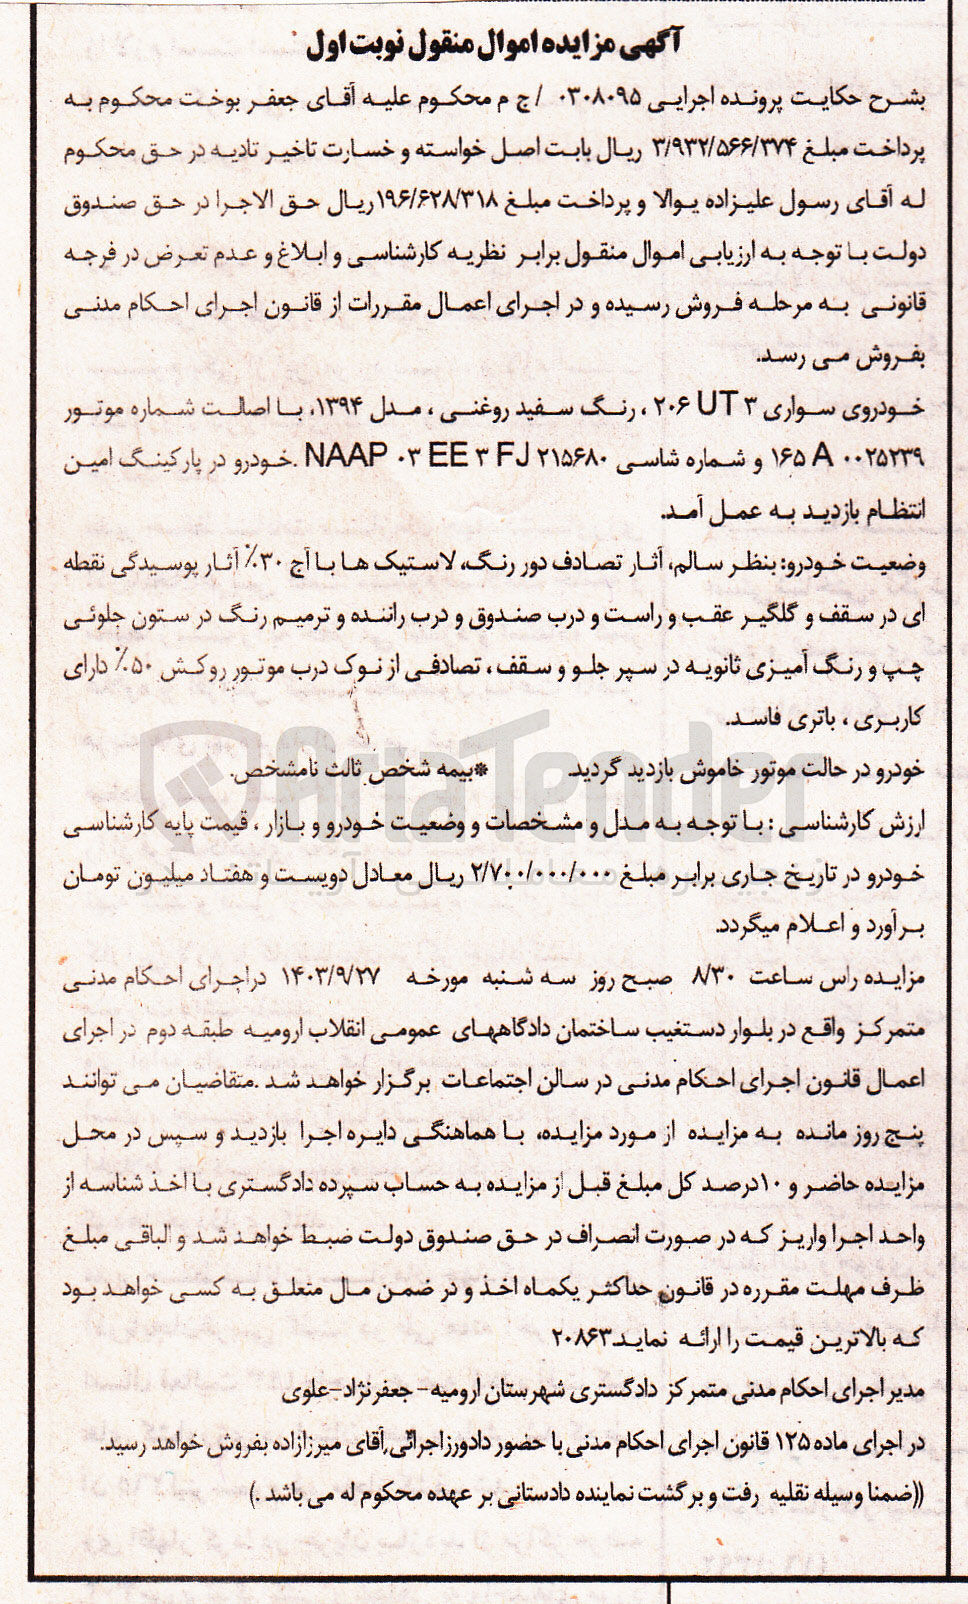 آگهی مزایده اموال منقول نوبت اول
بشرح حکایت پرونده اجرایی ۰۳۰۸۰۹۵ / ج م محکوم علیه آقای جعفر بوخت محکوم به
پرداخت مبلغ ۳/۹۳۲/۵۶۶/۳۷۴ ریال بابت اصل خواسته و خسارت تاخیر تادیه در حق محکوم
له آقای رسول علیزاده یوالا و پرداخت مبلغ ۱۹۶/۶۲۸/۳۱۸ریال حق الاجرا در حق صندوق
دولت با توجه به ارزیابی اموال منقول برابر نظریه کارشناسی و ابلاغ و عدم تعرض در فرجه
قانونی به مرحله فروش رسیده و در اجرای اعمال مقررات از قانون اجرای احکام مدنی
بفروش می رسد.
خودروی سواری ۲۰۶ UT ۳ ، رنگ سفید روغنی ، مدل ۱۳۹۴، با اصالت شماره موتور
۱۶۵ A ۰۰۲۵۲۳۹ و شماره شاسی NAAP ۰۳ EE ۳ FJ ۲۱۵۶۸۰ .خودرو در پارکینگ امین
انتظام بازدید به عمل آمد.
وضعیت خودرو: بنظر سالم، آثار تصادف دور رنگ، لاستیک ها با آج ۳۰٪ آثار پوسیدگی نقطه
ای در سقف و گلگیر عقب و راست و درب صندوق و درب راننده و ترمیم رنگ در ستون جلوئی
چپ و رنگ آمیزی ثانویه در سپر جلو و سقف ، تصادفی از نوک درب موتور روکش ۵۰٪ دارای
کاربری ، باتری فاسد.
خودرو در حالت موتور خاموش بازدید گردید. *بیمه شخص ثالث نامشخص.
ارزش کارشناسی : با توجه به مدل و مشخصات و وضعیت خودرو و بازار ، قیمت پایه کارشناسی
خودرو در تاریخ جاری برابر مبلغ ۲/۷۰۰/۰۰۰/۰۰۰ ریال معادل دویست و هفتاد میلیون تومان
برآورد و اعلام میگردد.
مزایده راس ساعت ۸/۳۰ صبح روز سه شنبه مورخه ۱۴۰۳/۹/۲۷ دراجرای احکام مدنی
متمرکز واقع در بلوار دستغیب ساختمان دادگاههای عمومی انقلاب ارومیه طبقه دوم در اجرای
اعمال قانون اجرای احکام مدنی در سالن اجتماعات برگزار خواهد شد .متقاضیان می توانند
پنج روز مانده به مزایده از مورد مزایده، با هماهنگی دایره اجرا بازدید و سپس در محل
مزایده حاضر و ۱۰درصد کل مبلغ قبل از مزایده به حساب سپرده دادگستری با اخذ شناسه از
واحد اجرا واریز که در صورت انصراف در حق صندوق دولت ضبط خواهد شد و الباقی مبلغ
ظرف مهلت مقرره در قانون حداکثر یکماه اخذ و در ضمن مال متعلق به کسی خواهد بود
که بالاترین قیمت را ارائه نماید.۲۰۸۶۳
مدیر اجرای احکام مدنی متمرکز دادگستری شهرستان ارومیه- جعفرنژاد-علوی
در اجرای ماده ۱۲۵ قانون اجرای احکام مدنی با حضور دادورزاجرائی,آقای میرزازاده بفروش خواهد رسید.
((ضمنا وسیله نقلیه رفت و برگشت نماینده دادستانی بر عهده محکوم له می باشد .)
AriaTender